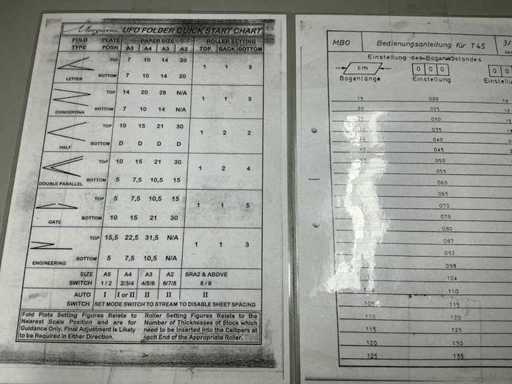 Morgana UFO FOLDER QUICK START CHART
FOLD TYPE PLATE POSN PAPER SIZE ROLLER SETTING
A5 A4 A3 A2 TOP BACK BOTTOM
TOP 7 10 14 20 1 1 3
BOTTOM 7 10 14 20
LETTER
TOP 14 20 28 N/A 1 1 3
BOTTOM 7 10 14 N/A
CONCERTINA
TOP 10 15 21 30 1 2 2
BOTTOM D D D D
HALF
TOP 10 15 21 30 1 2 4
BOTTOM 5 7,5 10,5 15
DOUBLE PARALLEL
TOP 5 7,5 10,5 15 1 1 5
BOTTOM 10 15 21 30
GATE
TOP 15,5 22,5 31,5 N/A 1 1 3
BOTTOM 5 7,5 10,5 N/A
ENGINEERING
SIZE A5 A4 A3 A2 SRA2 & ABOVE
SWITCH 1/2 2/3/4 4/5/6 6/7/8 8/9
AUTO I I or II II II II
SWITCH SET MODE SWITCH TO STREAM TO DISABLE SHEET SPACING
Fold Plate Setting Figures Relate to
Nearest Scale Position and are for
Guidance Only. Final Adjustment is Likely
to be Required in Either Direction.
Roller Setting Figures Relate to the
Number of Thicknesses of Stock which
need to be inserted into the Calipers at
each End of the Appropriate Roller.
MBO Bedienungsanleitung für T45 3/
Einstellung des Bogenabstandes
cm 0 0 0
Bogenlänge Einstellung
15 020
20 025
030
035
040
045
050
055
060
065
070
075
080
087
092
098
104
110
105 115
110 120
115 125
120 130
125 135